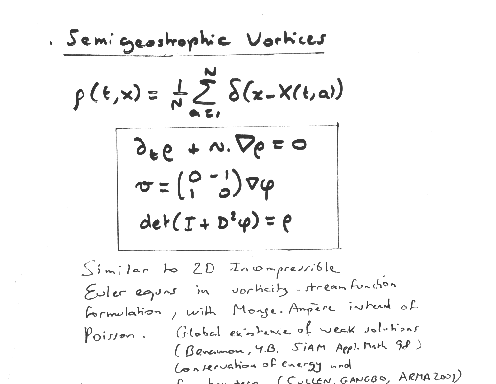 . Semigeostrophic Vortices
ρ(t,x) = 1/N Σ_{a=1}^{N} δ(x-X(t,a))
∂_t ρ + v.∇ρ = 0
v = (0 -1 1 0) ∇φ
det(I + D²φ) = ρ
Similar to 2D Incompressible
Euler equns in vorticity-streamfunction
formulation, with Monge-Ampère instead of
Poisson. (Global existence of weak solutions
(Benamou, Y.B. SIAM Appl. Math 98)
(Conservation of energy and
(CULLEN, GANGBO, ARMA 2001)